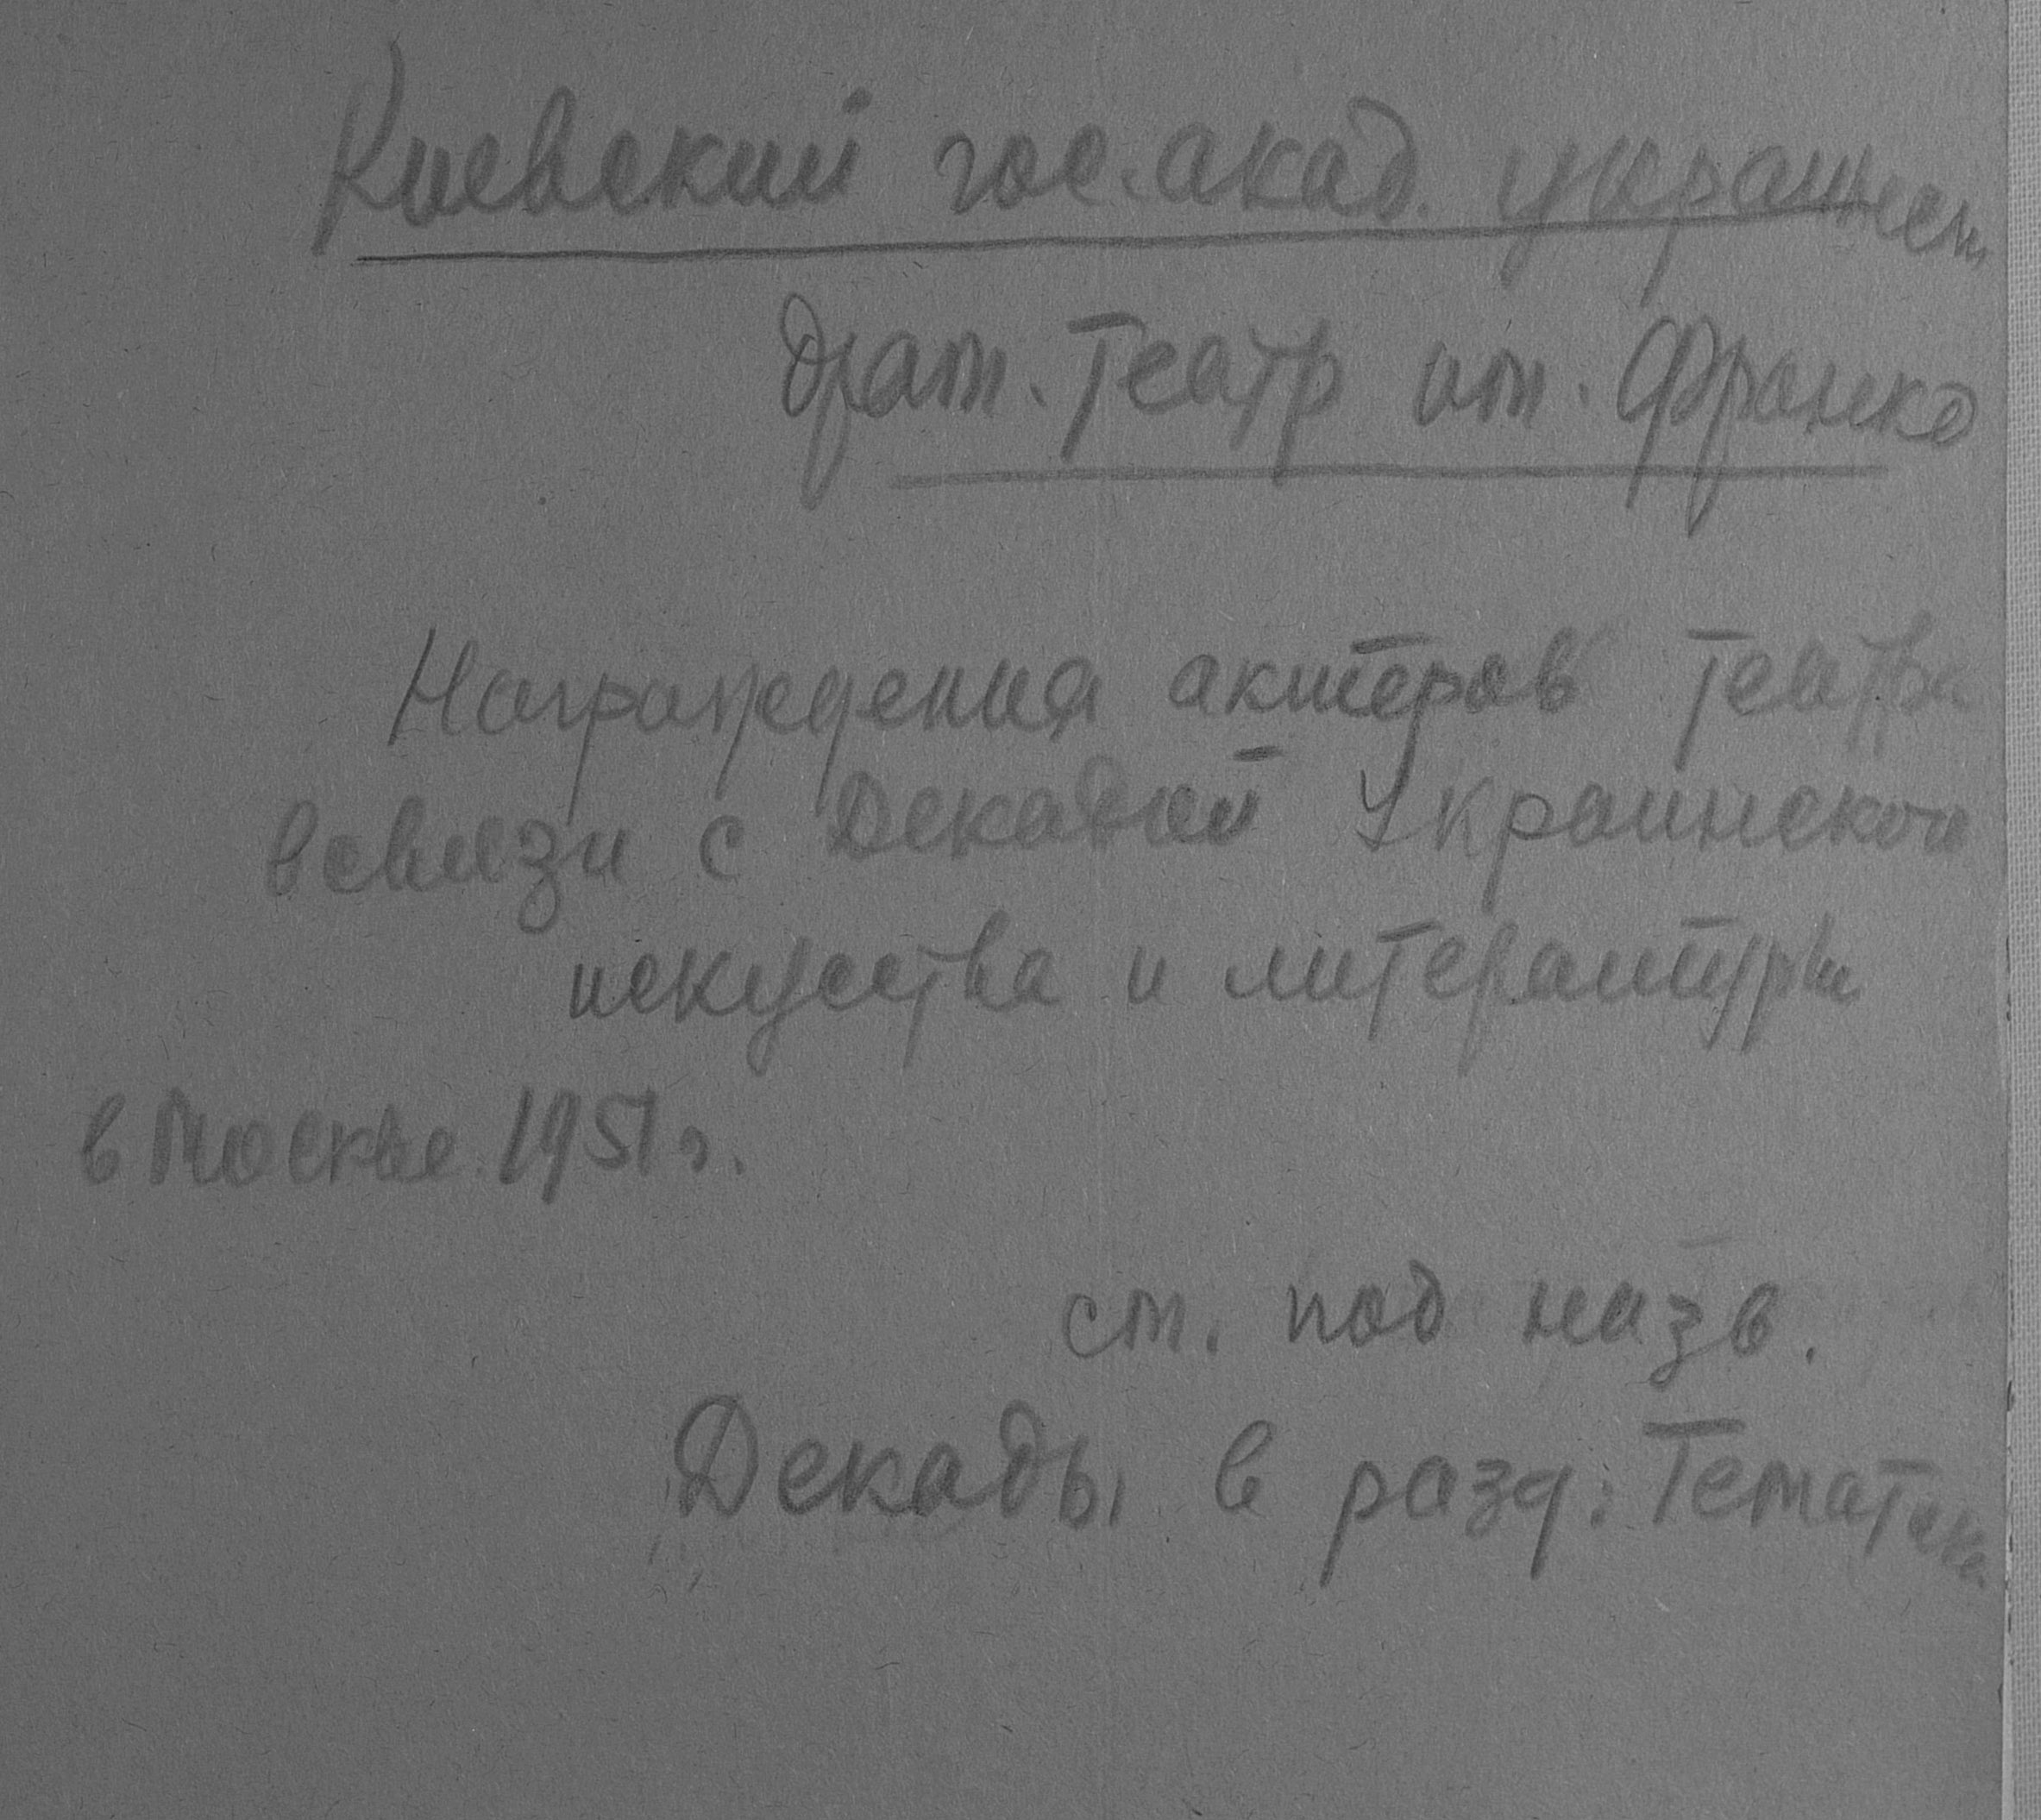 Киевский гос. акад. украинск
драм. театр им. Франко
Награждения актеров театра
в связи с Декадой Украинской
искуства и литературы
в Москве 1951 г.
см. под назв.
Декады в разд: Тематика